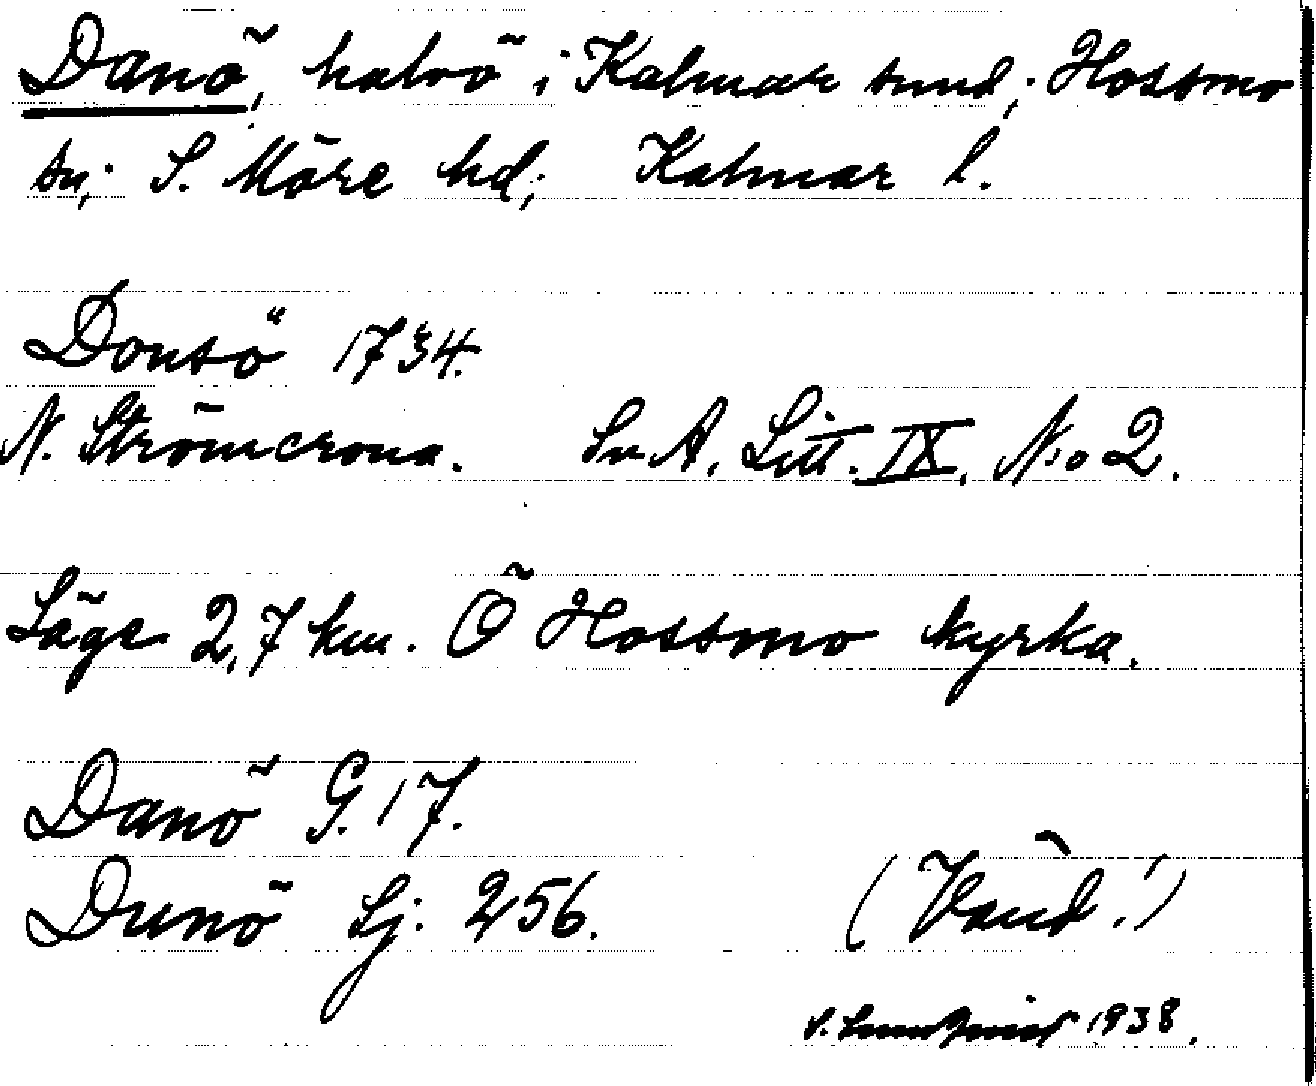 Danö, halvö i Kalmar sund; Hossmo
sn; S. Möre hd; Kalmar l.
Donsö 1734.
N. Strömcrona. Sv A. Litt. IX. N:o 2.
Läge 2,7 km. Ö Hossmo kyrka.
Danö G. 17.
Dunö Sj. 256. (Vänd!)
1938.